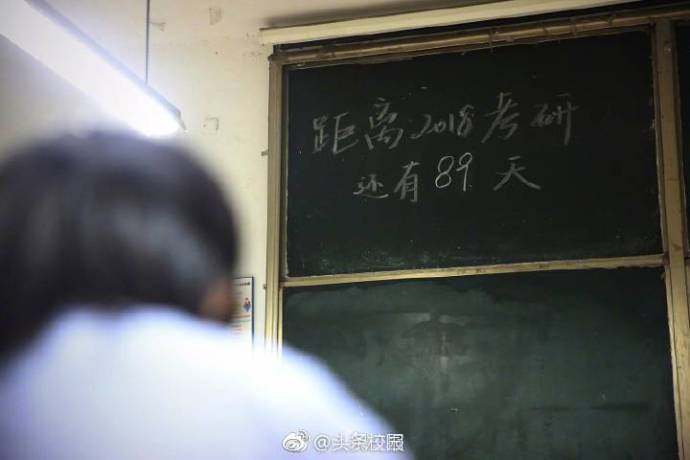 距离2018考研
还有89天
@头条校园